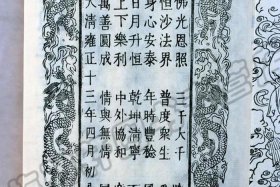 佛光恩照 三千大千
恒沙法界 普度衆生
身心安泰 年時豐稔
日月升恒 乾坤清寧
上下樂利 中外協和
萬善圓成 情與無情
大清雍正十三年四月初